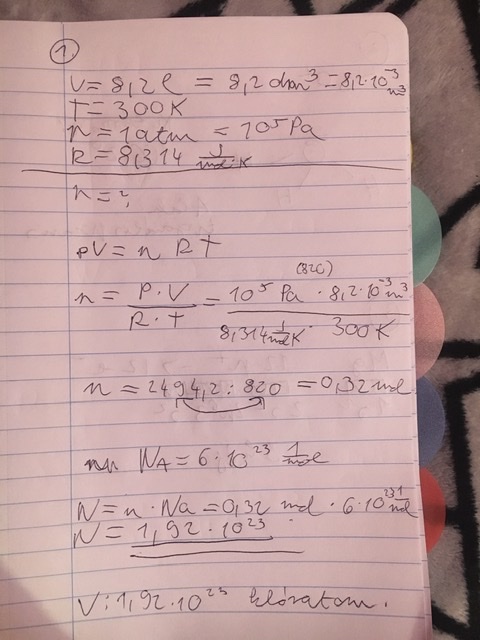 1
V = 8,2 l = 8,2 dm³ = 8,2·10⁻³ m³
T = 300 K
n = 1 atm = 10⁵ Pa
R = 8,314 J/mol·K
n = ?
pV = n R T
(820)
n = P·V / R·T = 10⁵ Pa · 8,2·10⁻³ m³ / 8,314 J/mol K · 300 K
n = 2494,2 : 820 = 0,32 mol
N_A = 6·10²³ 1/mol
N = n · Na = 0,32 mol · 6·10²³ 1/mol
N = 1,92·10²³
V: 1,92·10²³ klóratom.